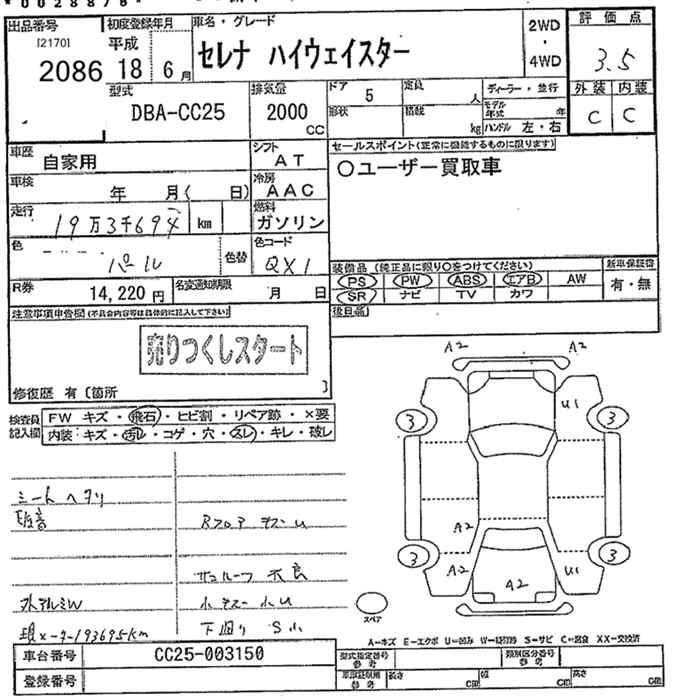 出品番号 初度登録年月 車名・グレード 2WD・4WD 評価点
[2170] 平成
2086 18 6月 セレナ ハイウェイスター 3.5
型式 排気量 ドア 定員 ディーラー・並行 外装 内装
DBA-CC25 2000 CC 5 人 モデル年式 年 C C
形状 積載 kg ハンドル 左・右
車歴 自家用 シフト AT セールスポイント(正常に機能するものに限ります)
車検 年 月( 日) 冷房 AAC ○ユーザー買取車
走行 19万3千694 km 燃料 ガソリン
色 パール 色替 色コード QX1
装備品 (純正品に限り○をつけてください) 新車保証書
R券 14,220円 名変通知期限 月 日 PS PW ABS エアB AW 有・無
SR ナビ TV カワ
注意事項申告欄(不具合内容等は具体的に記入して下さい) 後日品
売りつくしスタート
修復歴 有〔箇所 〕
検査員記入欄 FW キズ・飛石・ヒビ割・リペア跡・×要
内装:キズ・汚レ・コゲ・穴・スレ・キレ・破レ
A2 A2
U1
3 3
シートヘタリ
Rフロア キズU A2
3 3
サンルーフ 不良 A2 U1
A2
外アルミW 小キズ 小U
スペア
現メーター193695km 下廻り S小
A=キズ E=エクボ U=凹み W=板金跡 S=サビ C=腐食 XX=交換済
車台番号 CC25-003150 型式指定番号 参考 類別区分番号 参考
登録番号 車庫証明用 参考 長さ cm 幅 cm 高さ cm